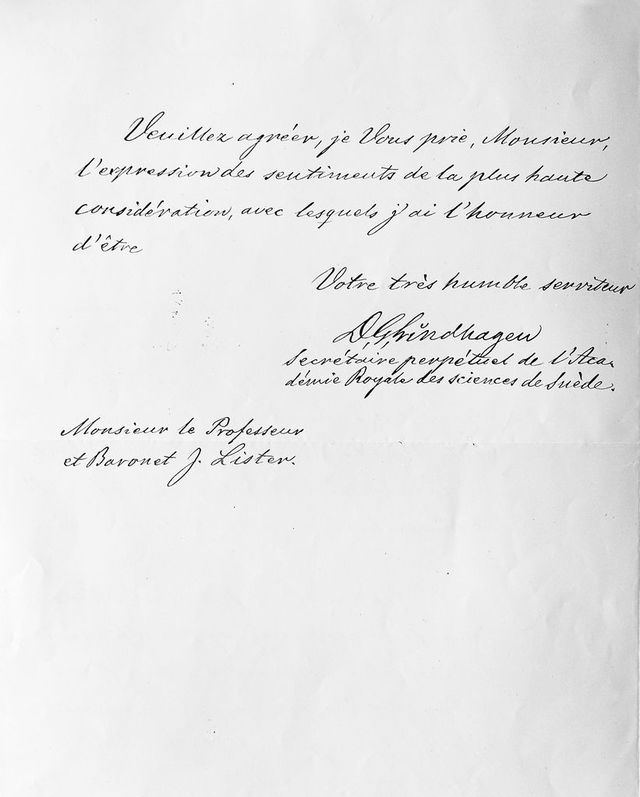 Veuillez agréer, je Vous prie, Monsieur,
l'expression des sentiments de la plus haute
considération, avec lesquels j'ai l'honneur
d'être
Votre très humble serviteur
D. G. Lindhagen
Secrétaire perpétuel de l'Aca-
démie Royale des sciences de Suède.
Monsieur le Professeur
et Baronet J. Lister.